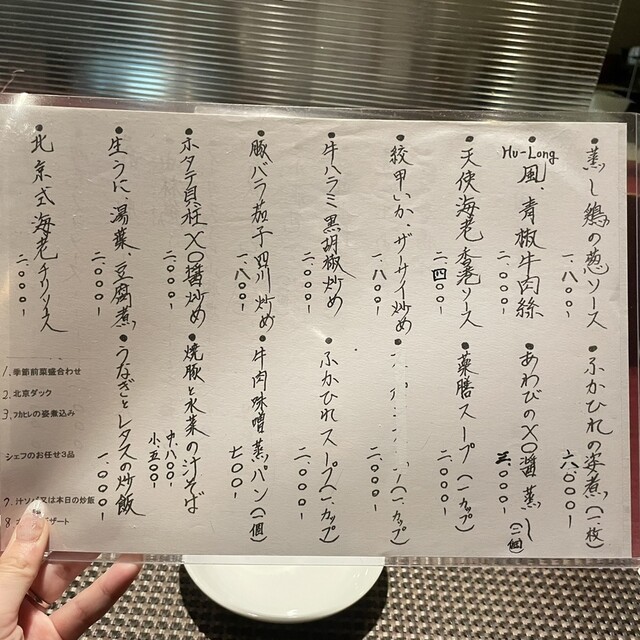 ●蒸し鶏の葱ソース
一.八〇〇-
●Hu-Long風、青椒牛肉絲
二.〇〇〇-
●天使海老香港ソース
二.四〇〇-
●紋甲いか、ザーサイ炒め
一.八〇〇-
●牛ハラミ黒胡椒炒め
二.〇〇〇-
●豚バラ茄子四川炒め
一.八〇〇-
●ホタテ貝柱XO醤炒め
二.〇〇〇-
●生うに、湯葉、豆腐煮
二.〇〇〇-
●北京式海老チリソース
二.〇〇〇-
●ふかひれの姿煮(一枚)
六.〇〇〇-
●あわびのXO醤蒸し(一個)
三.〇〇〇-
●薬膳スープ(一カップ)
二.〇〇〇-
(一カップ)
二.〇〇〇-
●ふかひれスープ(一カップ)
二.〇〇〇-
●牛肉味噌蒸パン(一個)
七〇〇-
●焼豚と水菜の汁そば
中.八〇〇-
小.五〇〇-
●うなぎとレタスの炒飯
一.〇〇〇-
1、季節前菜盛合わせ
2、北京ダック
3、フカヒレの姿煮込み
シェフのお任せ3品
7、汁ソバ又は本日の炒飯
8
ザート